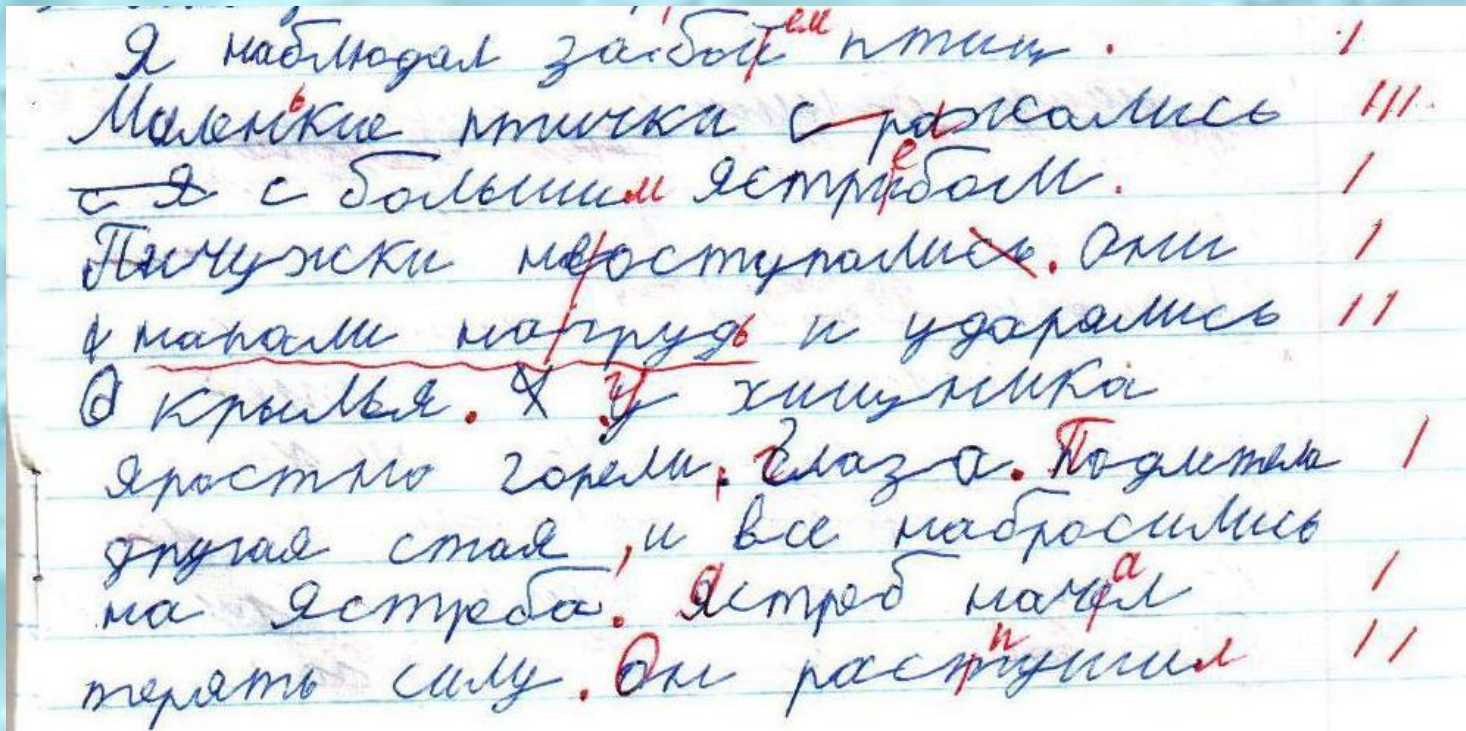 Я наблюдал за боем птиц.
Маленькие птички сражались
с я с большим ястребом.
Пичужки не оступались. Они
напали на грудь и ударялись
о крылья. У хищника
яростно горели глаза. Подлетела
другая стая, и все набросились
на ястреба. Ястреб начал
терять силу. Он распушил